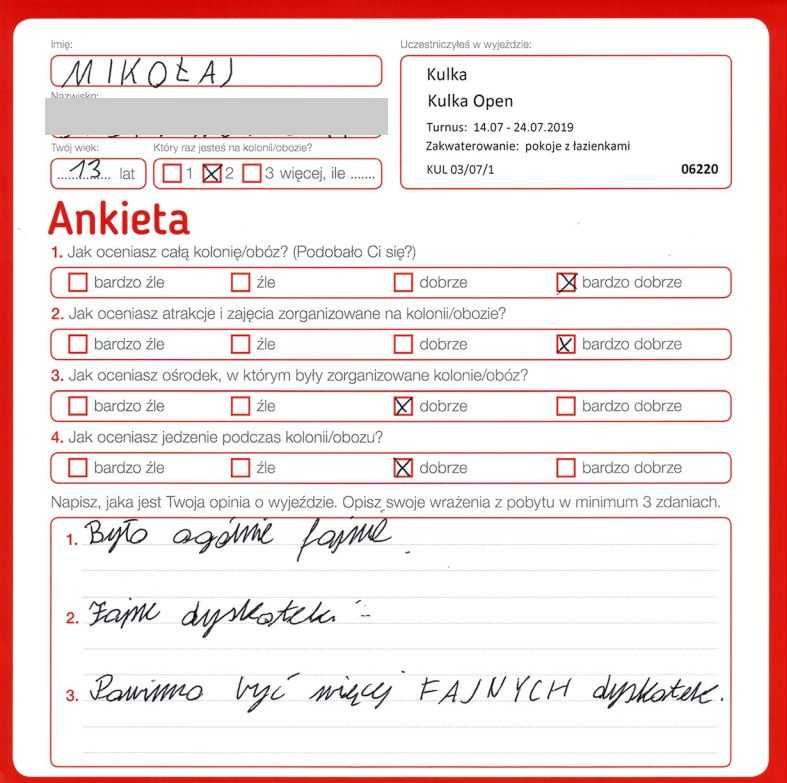 Imię:
Uczestniczyłeś w wyjeździe:
MIKOŁAJ
Kulka
Kulka Open
Nazwisko:
Turnus: 14.07 - 24.07.2019
Zakwaterowanie: pokoje z łazienkami
KUL 03/07/1
06220
Twój wiek:
Który raz jesteś na kolonii/obozie?
13 lat
1 2 3 więcej, ile .......
Ankieta
1. Jak oceniasz całą kolonię/obóz? (Podobało Ci się?)
bardzo źle źle dobrze bardzo dobrze
2. Jak oceniasz atrakcje i zajęcia zorganizowane na kolonii/obozie?
bardzo źle źle dobrze bardzo dobrze
3. Jak oceniasz ośrodek, w którym były zorganizowane kolonie/obóz?
bardzo źle źle dobrze bardzo dobrze
4. Jak oceniasz jedzenie podczas kolonii/obozu?
bardzo źle źle dobrze bardzo dobrze
Napisz, jaka jest Twoja opinia o wyjeździe. Opisz swoje wrażenia z pobytu w minimum 3 zdaniach.
1. Było ogólnie fajnie.
2. Fajne dyskoteki
3. Powinno być więcej FAJNYCH dyskotek.